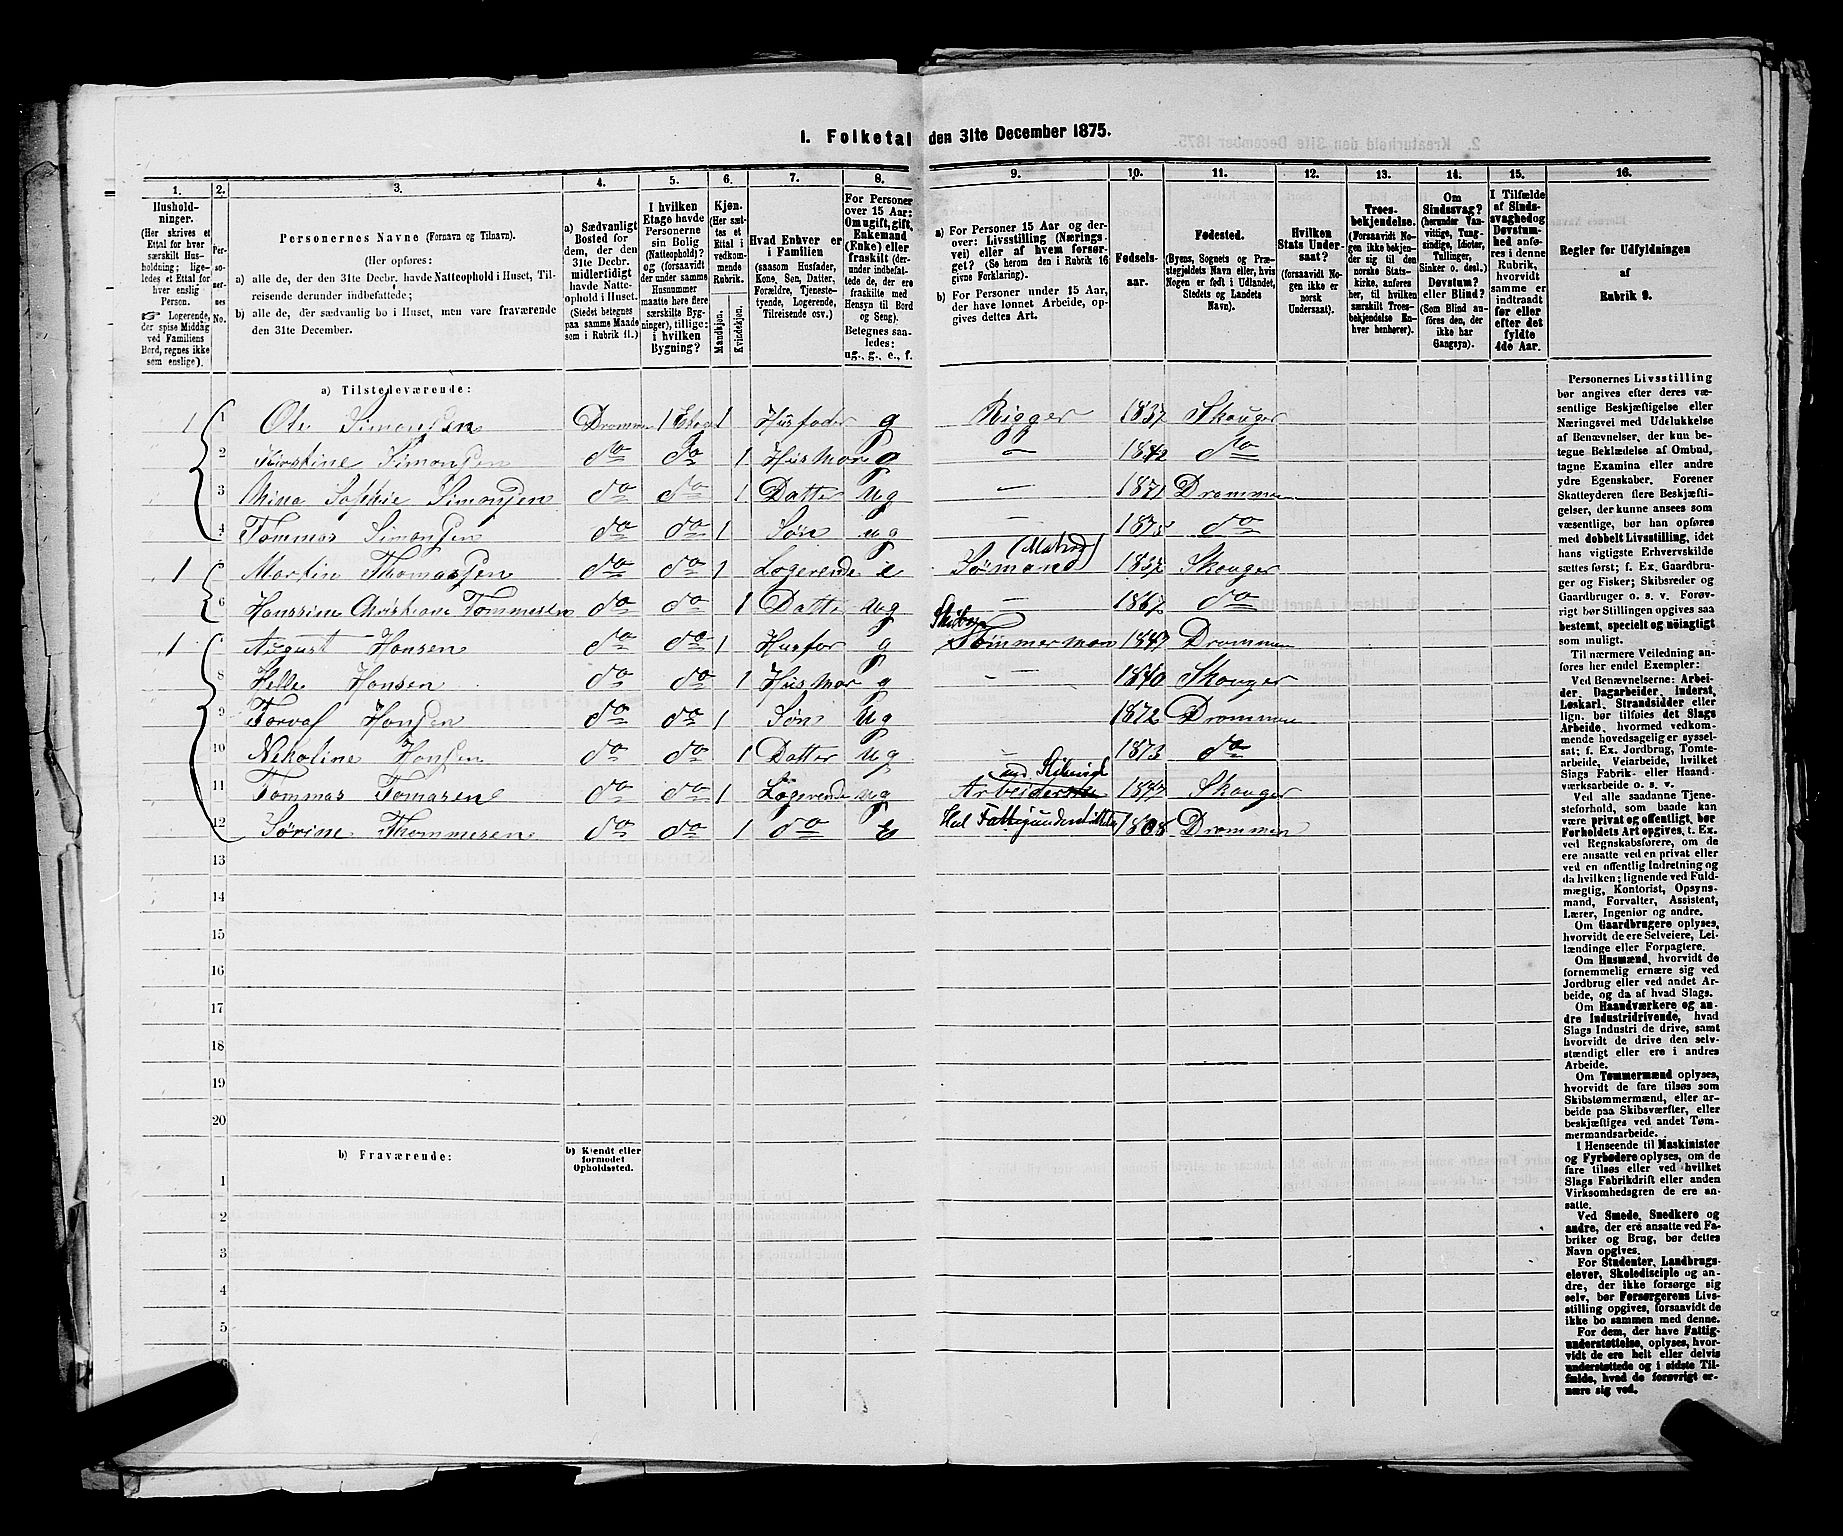 1. Folketal den 31te December 1875.
1. 2. 3. 4. 5. 6. 7. 8. 9. 10. 11. 12. 13. 14. 15. 16.
Husholdninger. (Her skrives et Ettal for hver særskilt Husholdning; ligeledes et Ettal for hver enslig Person.
☞ Logerende, der spise Middag ved Familiens Bord, regnes ikke som enslige).
Personernes No.
Personernes Navne (Fornavn og Tilnavn).
(Her opføres:
a) alle de, der den 31te Decbr. havde Natteophold i Huset, Tilreisende derunder indbefattede;
b) alle de, der sædvanlig bo i Huset, men vare fraværende den 31te December.
a) Sædvanligt Bosted for dem, der den 31te Decbr. midlertidigt havde Natteophold i Huset. (Stedet betegnes paa samme Maade som i Rubrik 11.)
I hvilken Etage havde Personerne sin Bolig (Natteophold)? og (forsaavidt der under samme Husnummer maatte høre flere særskilte Bygninger), tillige: i hvilken Bygning?
Kjøn. (Her sættes et Ettal i vedkommende Rubrik.
Mandkjøn. Kvindekjøn.
Hvad Enhver er i Familien (saasom Husfader, Kone, Søn, Datter, Forældre, Tjenestetyende, Logerende, Tilreisende osv.)
For Personer over 15 Aar: Om ugift, gift, Enkemand (Enke) eller fraskilt (derunder indbefattede de, der ere fraskilte med Hensyn til Bord og Seng). Betegnes saaledes: ug., g., e., f.
a) For Personer 15 Aar og derover: Livsstilling (Næringsvei) eller af hvem forsørget? (Se herom den i Rubrik 16 givne Forklaring).
b) For Personer under 15 Aar, der have lønnet Arbeide, opgives dettes Art.
Fødselsaar.
Fødested. (Byens, Sognets og Præstegjeldets Navn eller, hvis Nogen er født i Udlandet, Stedets og Landets Navn).
Hvilken Stats Undersaat? (forsaavidt Nogen ikke er norsk Undersaat).
Troesbekjendelse. (Forsaavidt Nogen ikke bekjender sig til den norske Statskirke, anføres her, til hvilken særskilt Troesbekjendelse Enhver henhører).
Om Sindssvag? (herunder Vanvittige, Tungsindige, Idioter, Tullinger, Sinker o. desl.) Døvstum? eller Blind? (Som Blind anføres den, der ikke har Gangsyn).
I Tilfælde af Sindssvaghed og Døvstumhed anføres i denne Rubrik, hvorvidt samme er indtraadt før eller efter det fyldte 4de Aar.
Regler for Udfyldningen af Rubrik 9.
a) Tilstedeværende:
1 1 Ole Simonsen Drammen 1 Etage 1 Husfader g Rigger 1837 Skouger
2 Kirstine Simonsen do do 1 Husmor g — 1842 do
3 Mina Sophie Simonsen do do 1 Datter ug — 1871 Drammen
4 Tommas Simonsen do do 1 Søn ug — 1875 do
1 Martin Thomassen do do 1 Logerende e Sømand (Matros) 1837 Skouger
6 Hanssine Christiane Tommesen do do 1 Datter ug — 1867 do
1 August Hansen do do 1 Husfar g Skibs Tømmerman 1847 Drammen
8 Helle Hansen do do 1 Husmor g — 1840 Skouger
9 Torvaf Hansen do do 1 Søn ug 1872 Drammen
10 Nekoline Hansen do do 1 Datter ug — 1873 do
11 Tommas Tomasen do do 1 Logerende ug Arbeider 1847 Skouger
12 Sørine Thommesen do do 1 do E Hel Fattigunderstøttet 1808 Drammen
13
14
15
16
17
18
19
20
b) Fraværende: b) Kjendt eller formodet Opholdssted.
1
2
3
4
5
Personernes Livsstilling
bør angives efter deres væ-
sentlige Beskjæftigelse eller
Næringsvei med Udelukkelse
af Benævnelser, der kun be-
tegne Beklædelse af Ombud,
tagne Examina eller andre
ydre Egenskaber. Forener
Skatteyderen flere Beskjæfti-
gelser, der kunne ansees som
væsentlige, bør han opføres
med dobbelt Livsstilling, idet
hans vigtigste Erhvervskilde
sættes først; f. Ex. Gaardbru-
ger og Fisker; Skibsreder og
Gaardbruger o. s. v. Forøv-
rigt bør Stillingen opgives saa
bestemt, specielt og nøiagtigt
som muligt.
Til nærmere Veiledning an-
føres her endel Exempler:
Ved Benævnelserne: Arbei-
der, Dagarbeider, Inderst,
Løskarl, Strandsidder eller
lign. bør tilføies det Slags
Arbeide, hvormed vedkom-
mende hovedsagelig er syssel-
sat; f. Ex. Jordbrug, Tomte-
arbeide, Veiarbeide, hvilket
Slags Fabrik- eller Haand-
værksarbeide o. s. v.
Ved alle saadanne Tjene-
steforhold, som baade kan
være privat og offentligt, bør
Forholdets Art opgives, t. Ex.
ved Regnskabsførere, om de
ere ansatte ved en privat eller
ved en offentlig Indretning og
da hvilken; lignende ved Fuld-
mægtig, Kontorist, Opsyns-
mand, Forvalter, Assistent,
Lærer, Ingeniør og andre.
Om Gaardbrugere oplyses,
hvorvidt de ere Selveiere, Lei-
lændinge eller Forpagtere.
Om Husmænd, hvorvidt de
fornemmelig ernære sig ved
Jordbrug eller ved andet Ar-
beide, og da af hvad Slags.
Om Haandværkere og an-
dre Industridrivende, hvad
Slags Industri de drive, samt
hvorvidt de drive den selv-
stændigt eller ere i andres
Arbeide.
Om Tømmermænd oplyses,
hvorvidt de fare tilsøs som
Skibstømmermænd, eller ar-
beide paa Skibsværfter, eller
beskjæftiges ved andet Tøm-
mermandsarbeide.
I Henseende til Maskinister
og Fyrbødere oplyses, om de
fare tilsøs eller ved hvilket
Slags Fabrikdrift eller anden
Virksomhedsgren de ere an-
satte.
Ved Smede, Snedkere og
andre, der ere ansatte ved Fa-
briker og Brug, bør dettes
Navn opgives.
For Studenter, Landbrugs-
elever, Skoledisciple og an-
dre, der ikke forsørge sig
selv, bør Forsørgerens Livs-
stilling opgives, forsaavidt de
ikke bo sammen med denne.
For dem, der have Fattig-
understøttelse, oplyses, hvor-
vidt de ere helt eller delvis
understøttede og i sidste Til-
fælde, hvad de forøvrigt er-
nære sig ved.